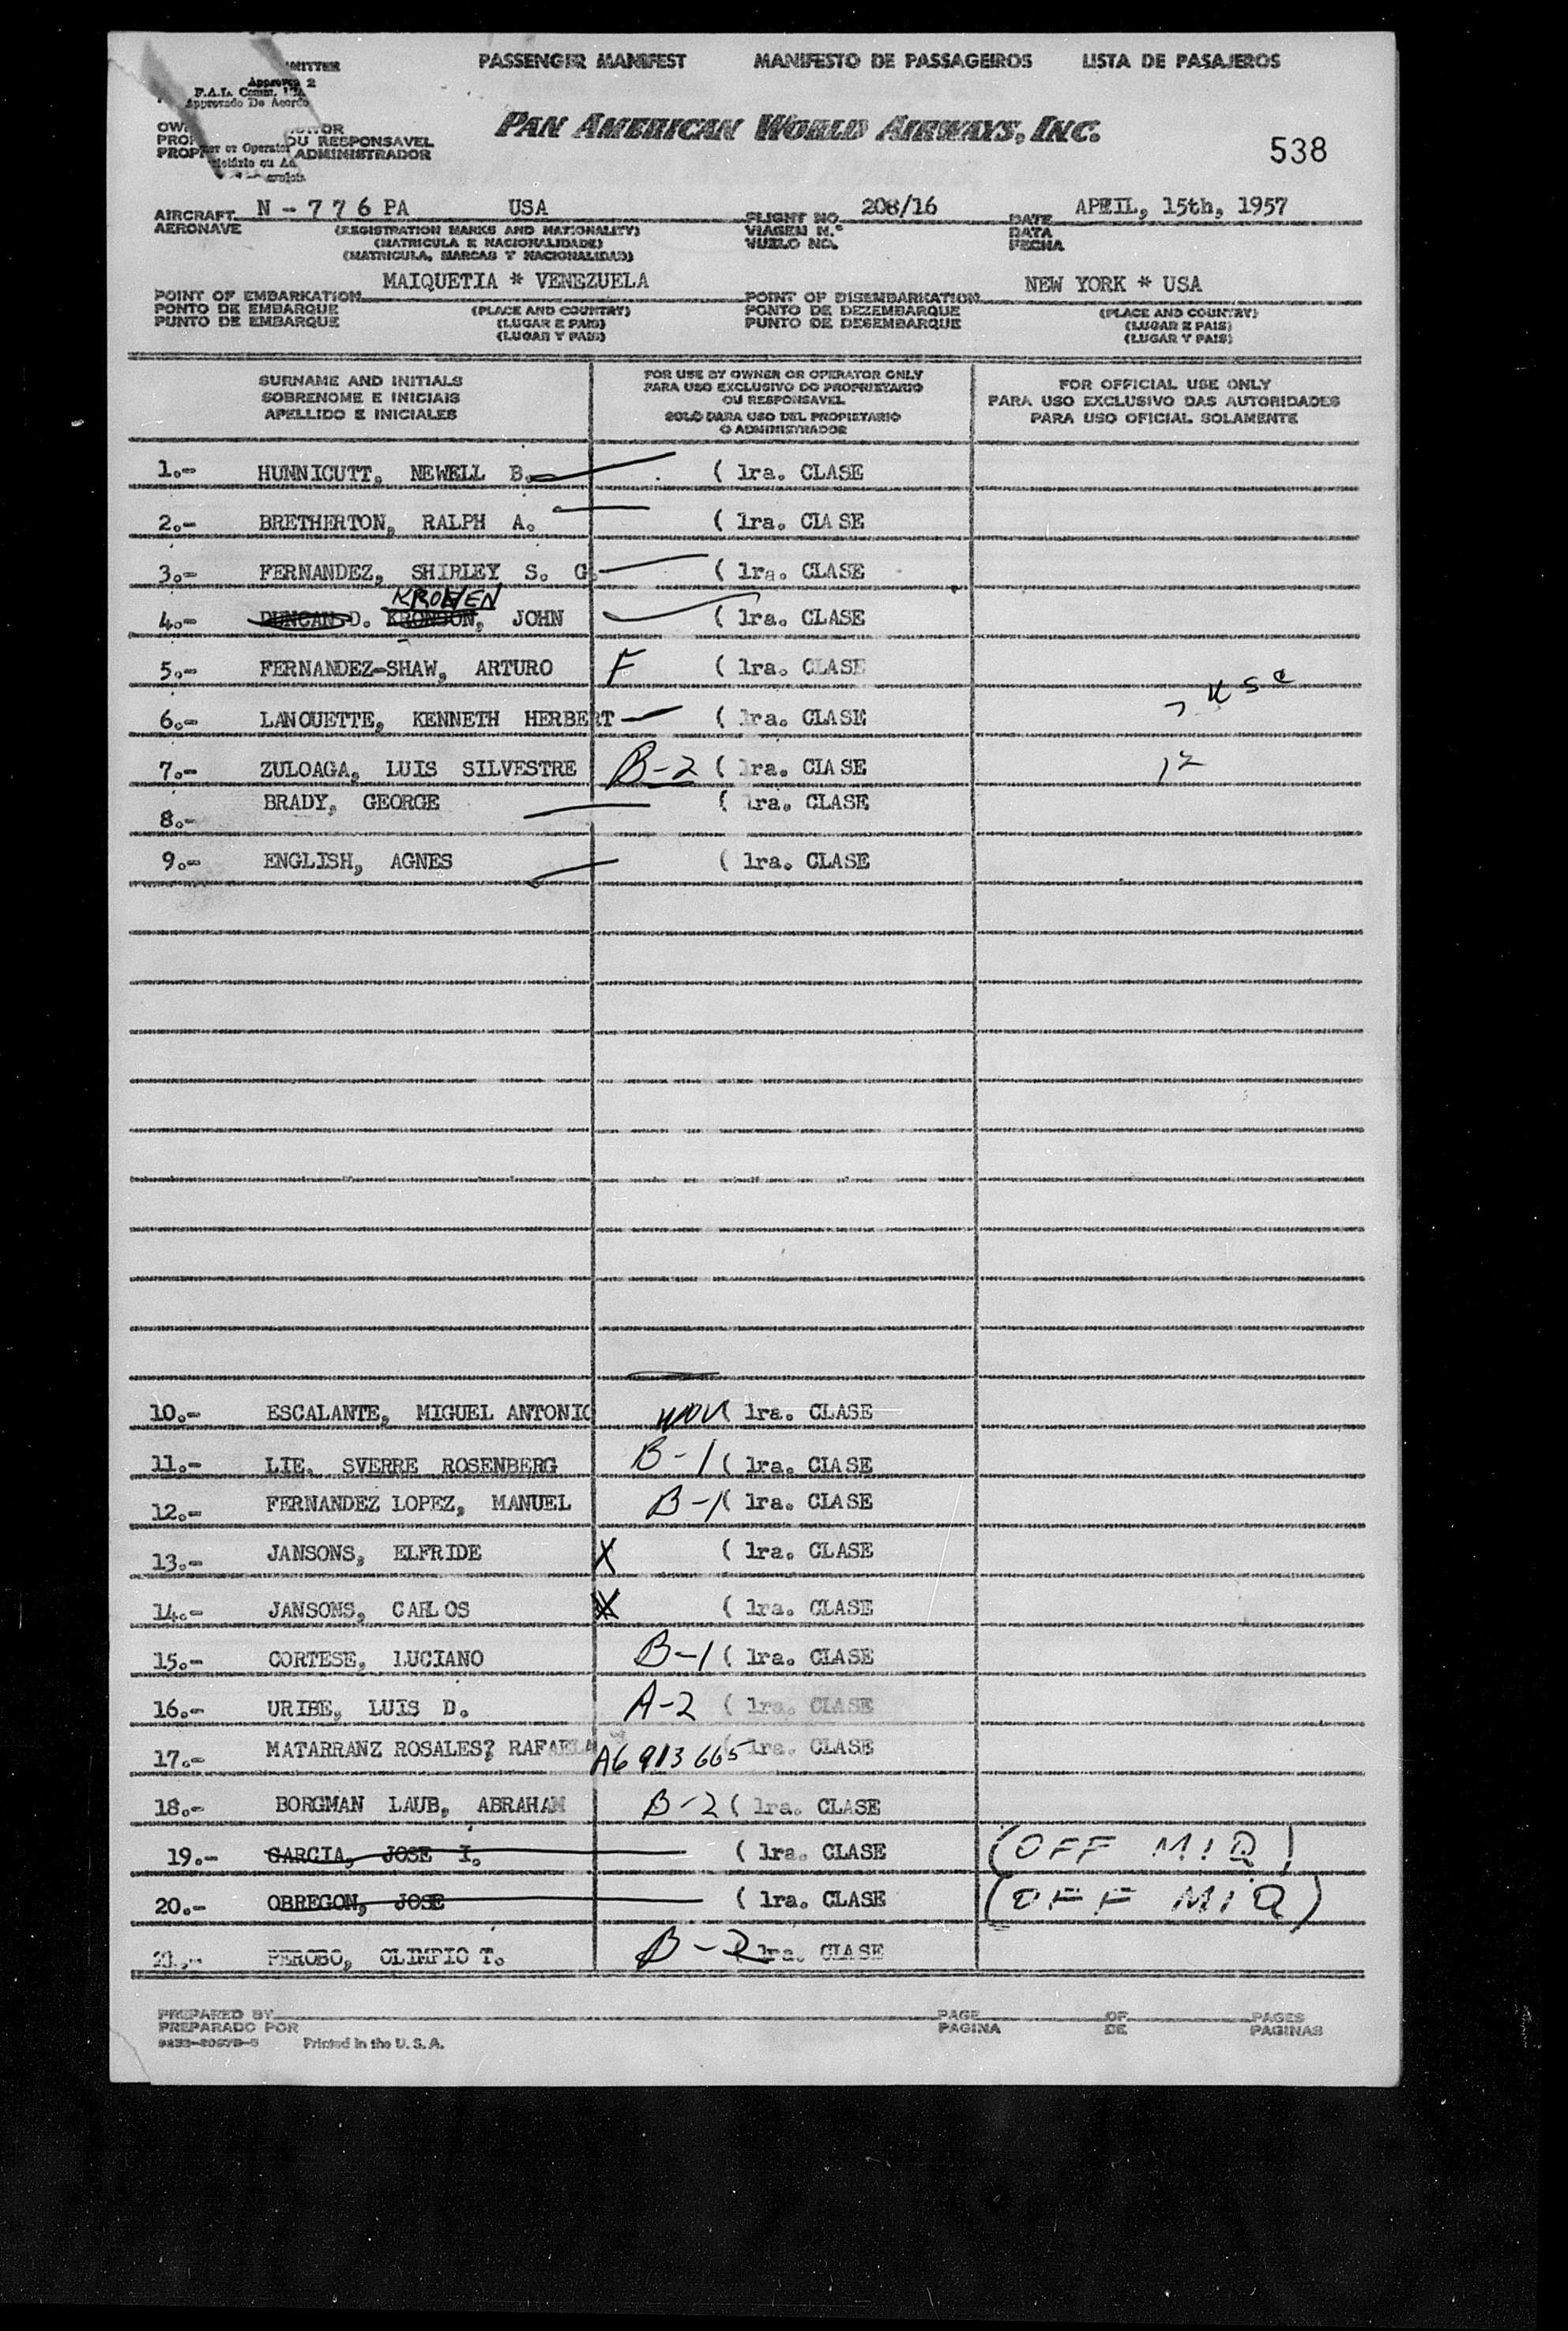 PASSENGER MANIFEST MANIFESTO DE PASSAGEIROS LISTA DE PASAJEROS
F.A.L. Comm.
Approvado De Acordo
PAN AMERICAN WORLD AIRWAYS, INC.
538
OU RESPONSAVEL
or Operator
ADMINISTRADOR
AIRCRAFT N-776PA USA FLIGHT NO. 208/16 DATE APRIL, 15th, 1957
AERONAVE (REGISTRATION MARKS AND NATIONALITY) VIAGEM N.º DATA
(MATRICULA E NACIONALIDADE) VUELO NO. FECHA
(MATRICULA, MARCAS Y NACIONALIDAD)
POINT OF EMBARKATION MAIQUETIA * VENEZUELA POINT OF DISEMBARKATION NEW YORK * USA
PONTO DE EMBARQUE (PLACE AND COUNTRY) PONTO DE DEZEMBARQUE (PLACE AND COUNTRY)
PUNTO DE EMBARQUE (LUGAR E PAIS) PUNTO DE DESEMBARQUE (LUGAR E PAIS)
(LUGAR Y PAIS) (LUGAR Y PAIS)
SURNAME AND INITIALS
SOBRENOME E INICIAIS
APELLIDO E INICIALES
FOR USE BY OWNER OR OPERATOR ONLY
PARA USO EXCLUSIVO DO PROPRIETARIO
OU RESPONSAVEL
SOLO PARA USO DEL PROPIETARIO
O ADMINISTRADOR
FOR OFFICIAL USE ONLY
PARA USO EXCLUSIVO DAS AUTORIDADES
PARA USO OFICIAL SOLAMENTE
1.- HUNNICUTT, NEWELL B. ( 1ra. CLASE
2.- BRETHERTON, RALPH A. ( 1ra. CLASE
3.- FERNANDEZ, SHIRLEY S. G. ( 1ra. CLASE
KROHEN
4.- DUNCAN D. KRONSON, JOHN ( 1ra. CLASE
5.- FERNANDEZ-SHAW, ARTURO F ( 1ra. CLASE
6.- LANOUETTE, KENNETH HERBERT ( 1ra. CLASE 7 USC
7.- ZULOAGA, LUIS SILVESTRE B-2 ( 1ra. CLASE 12
8.- BRADY, GEORGE ( 1ra. CLASE
9.- ENGLISH, AGNES ( 1ra. CLASE
10.- ESCALANTE, MIGUEL ANTONIO ( 1ra. CLASE
11.- LIE. SVERRE ROSENBERG B-1 ( 1ra. CLASE
12.- FERNANDEZ LOPEZ, MANUEL B-1 ( 1ra. CLASE
13.- JANSONS, ELFRIDE X ( 1ra. CLASE
14.- JANSONS, CARLOS X ( 1ra. CLASE
15.- CORTESE, LUCIANO B-1 ( 1ra. CLASE
16.- URIBE, LUIS D. A-2 ( 1ra. CLASE
17.- MATARRANZ ROSALES? RAFAELA A6 913 665 1ra. CLASE
18.- BORGMAN LAUB, ABRAHAM B-2 ( 1ra. CLASE
19.- GARCIA, JOSE I. ( 1ra. CLASE (OFF MIQ)
20.- OBREGON, JOSE ( 1ra. CLASE (OFF MIQ)
21.- PEROBO, OLIMPIO T. B-2 ( 1ra. CLASE
PREPARED BY PAGE OF PAGES
PREPARADO POR PAGINA DE PAGINAS
Printed in the U.S.A.